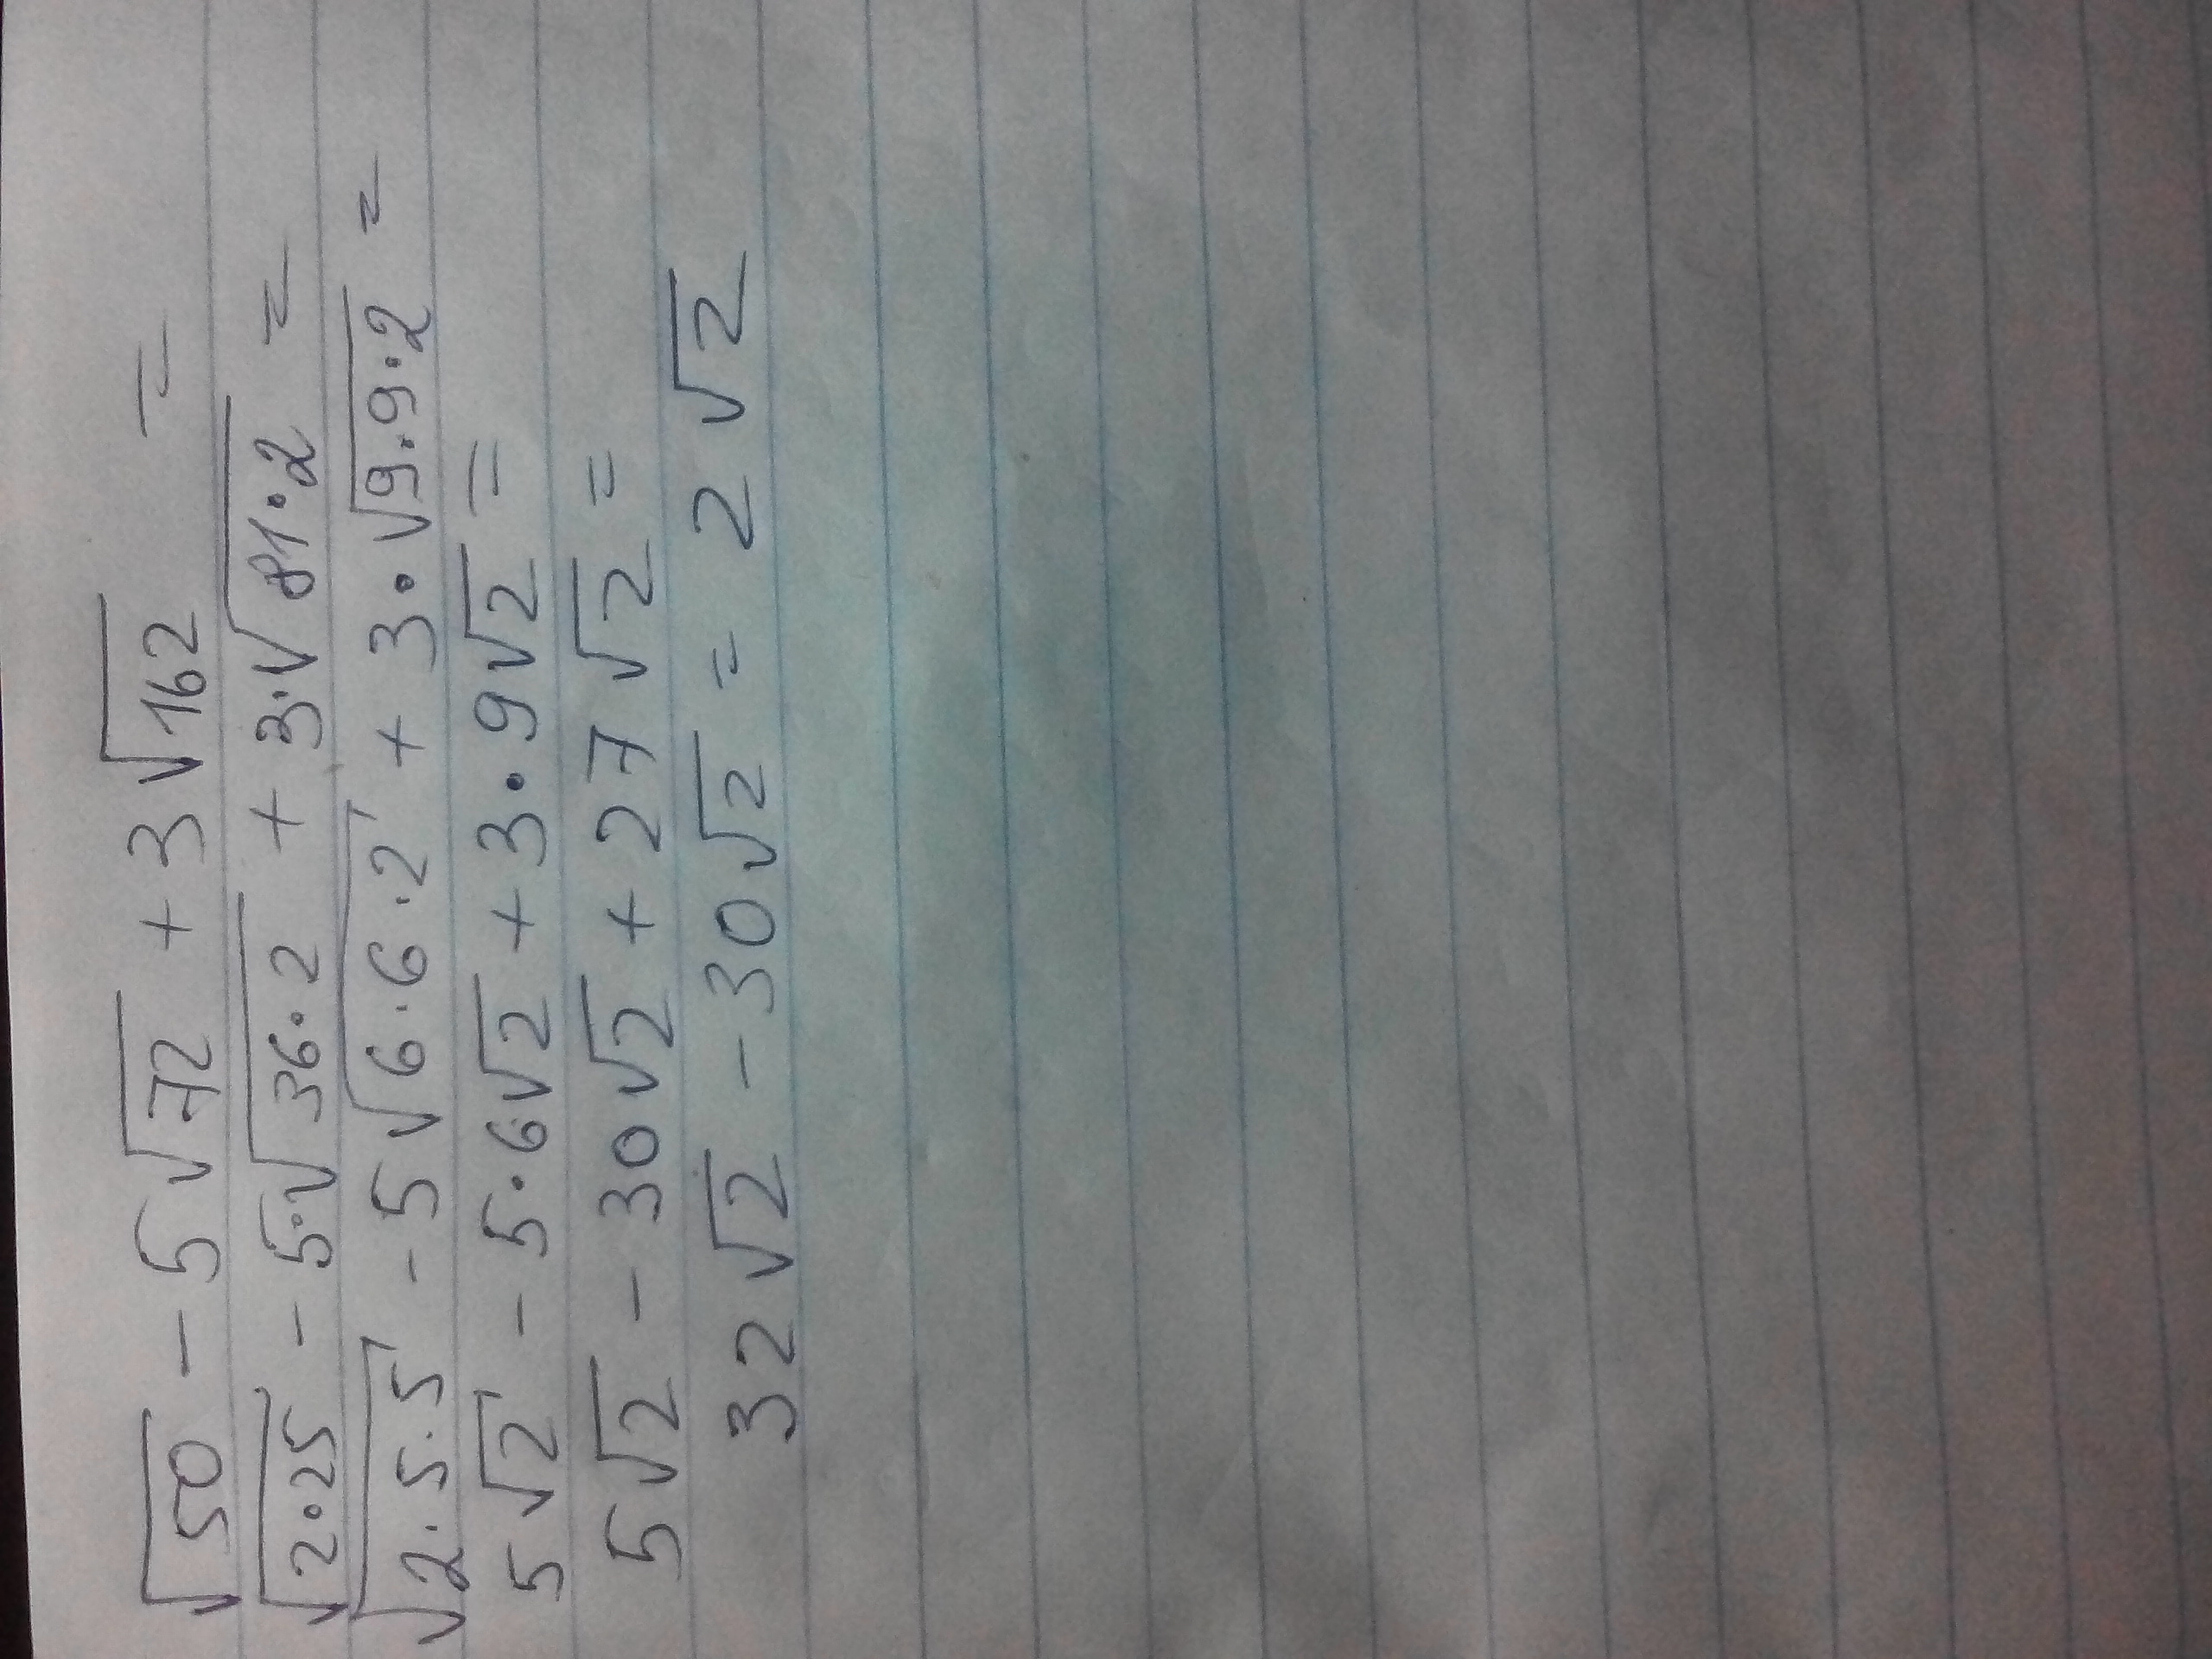 √50 - 5√72 + 3√162 =
√2·25 - 5·√36·2 + 3·√81·2 =
√2·5·5 - 5√6·6·2 + 3·√9·9·2 =
5√2 - 5·6√2 + 3·9√2 =
5√2 - 30√2 + 27√2 =
32√2 - 30√2 = 2√2